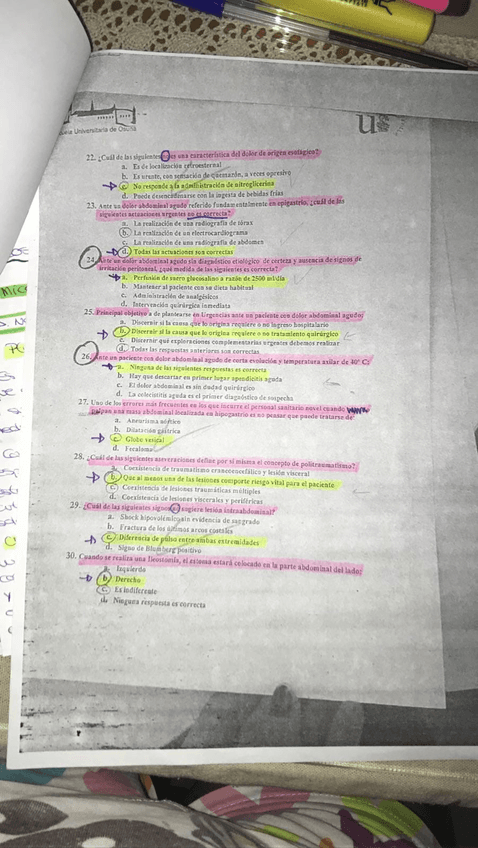 Universitaria de Osuna
22. ¿Cuál de las siguientes no es una característica del dolor de origen esofágico?
a. Es de localización retroesternal
b. Es urente, con sensación de quemazón, a veces opresivo
c. No responde a la administración de nitroglicerina
d. Puede desencadenarse con la ingesta de bebidas frías
23. Ante un dolor abdominal agudo referido fundamentalmente en epigastrio, ¿cuál de las
siguientes actuaciones urgentes no es correcta?
a. La realización de una radiografía de tórax
b. La realización de un electrocardiograma
c. La realización de una radiografía de abdomen
d. Todas las actuaciones son correctas
24. Ante un dolor abdominal agudo sin diagnóstico etiológico de certeza y ausencia de signos de
irritación peritoneal, ¿qué medida de las siguientes es correcta?
a. Perfusión de suero glucosalino a razón de 2500 ml/día
b. Mantener al paciente con su dieta habitual
c. Administración de analgésicos
d. Intervención quirúrgica inmediata
25. Principal objetivo a de plantearse en Urgencias ante un paciente con dolor abdominal agudo:
a. Discernir si la causa que lo origina requiere o no ingreso hospitalario
b. Discernir si la causa que lo origina requiere o no tratamiento quirúrgico
c. Discernir qué exploraciones complementarias urgentes debemos realizar
d. Todas las respuestas anteriores son correctas
26. Ante un paciente con dolor abdominal agudo de corta evolución y temperatura axilar de 40º C:
a. Ninguna de las siguientes respuestas es correcta
b. Hay que descartar en primer lugar apendicitis aguda
c. El dolor abdominal es sin dudad quirúrgico
d. La colecistitis aguda es el primer diagnóstico de sospecha
27. Uno de los errores más frecuentes en los que incurre el personal sanitario novel cuando
palpan una masa abdominal localizada en hipogastrio es no pensar que puede tratarse de
a. Aneurisma aórtico
b. Dilatación gástrica
c. Globo vesical
d. Fecaloma
28. ¿Cuál de las siguientes aseveraciones define por si misma el concepto de politraumatismo?
a. Coexistencia de traumatismo craneoencefálico y lesión visceral
b. Que al menos una de las lesiones comporte riesgo vital para el paciente
c. Coexistencia de lesiones traumáticas múltiples
d. Coexistencia de lesiones viscerales y periféricas
29. ¿Cuál de las siguientes signos no sugiere lesión intraabdominal?
a. Shock hipovolémico sin evidencia de sangrado
b. Fractura de los últimos arcos costales
c. Diferencia de pulso entre ambas extremidades
d. Signo de Blumberg positivo
30. Cuando se realiza una Ileostomía, el estoma estará colocado en la parte abdominal del lado:
a. Izquierdo
b. Derecho
c. Es indiferente
d. Ninguna respuesta es correcta